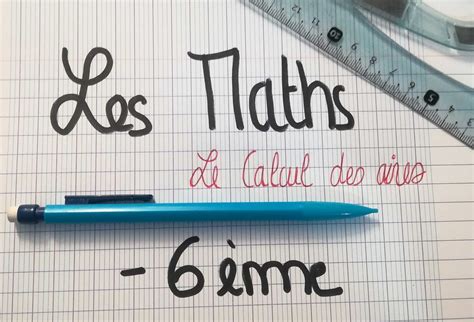 Les Maths
Le Calcul des aires
- 6ème
15
10
5
0